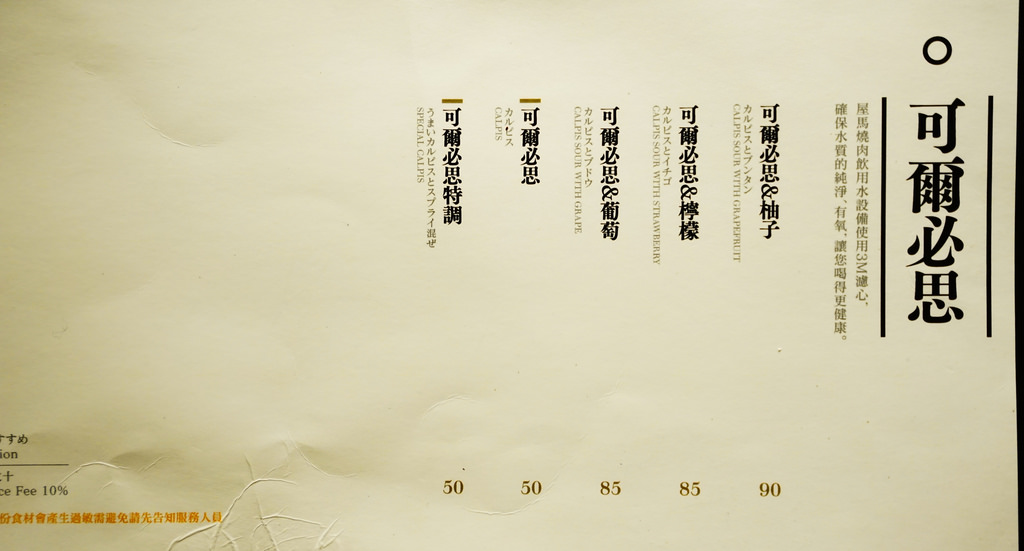 可爾必思
屋馬燒肉飲用水設備使用3M濾心,
確保水質的純淨、有氧、讓您喝得更健康。
可爾必思&柚子
カルピスとブンタン
CALPIS SOUR WITH GRAPEFRUIT
90
可爾必思&檸檬
カルピスとイチゴ
CALPIS SOUR WITH STRAWBERRY
85
可爾必思&葡萄
カルピスとブドウ
CALPIS SOUR WITH GRAPE
85
可爾必思
カルピス
CALPIS
50
可爾必思特調
うまいカルピスとスプライ混ぜ
SPECIAL CALPIS
50
すすめ
ion
十
ce Fee 10%
份食材會產生過敏需避免請先告知服務人員